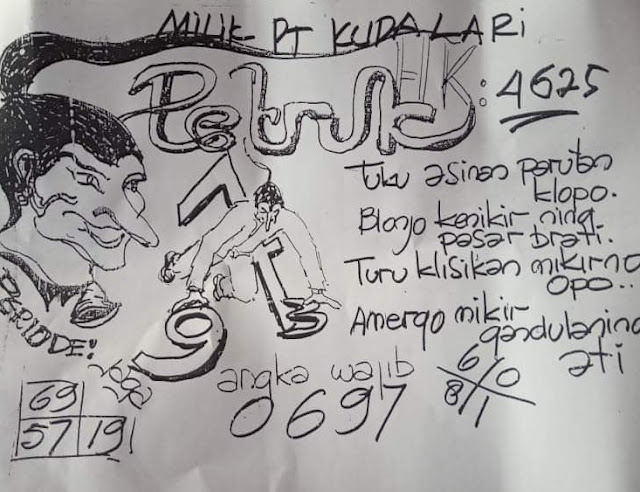 MILIK PT KUDA LARI
Petruk HK: 4625
Tuku asinan parutan
klopo.
Blonjo kenikir ning
pasar brati.
Turu klisikan mikirno
opo..
Amergo mikir
gandulaning
ati
1
9 13
PERIODE!
69
57 19
angka wajib
0697
6 0
8 1